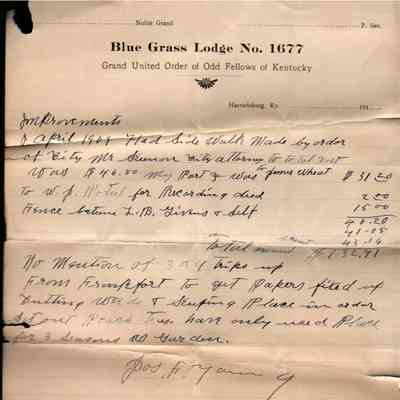 Noble Grand P. Sec.
Blue Grass Lodge No. 1677
Grand United Order of Odd Fellows of Kentucky
Harrodsburg, Ky. 191
Improvements
April 1909 Had Side Walk Made by order
of City Mr City attorney total cost
Was $ 46.00 my Part & Was to James Wheat $ 31 50
to W. J. for Recording deed 2 50
Fence between L. B. Givens & Self 15 00
41-05
43.14
total
No Mention of 3 or 4 trips up
From Frankfort to get Papers fixed up
Cutting Weeds & Keeping Place in order
have only used Place
for 3 Seasons as Garden.
Jos. F. Young